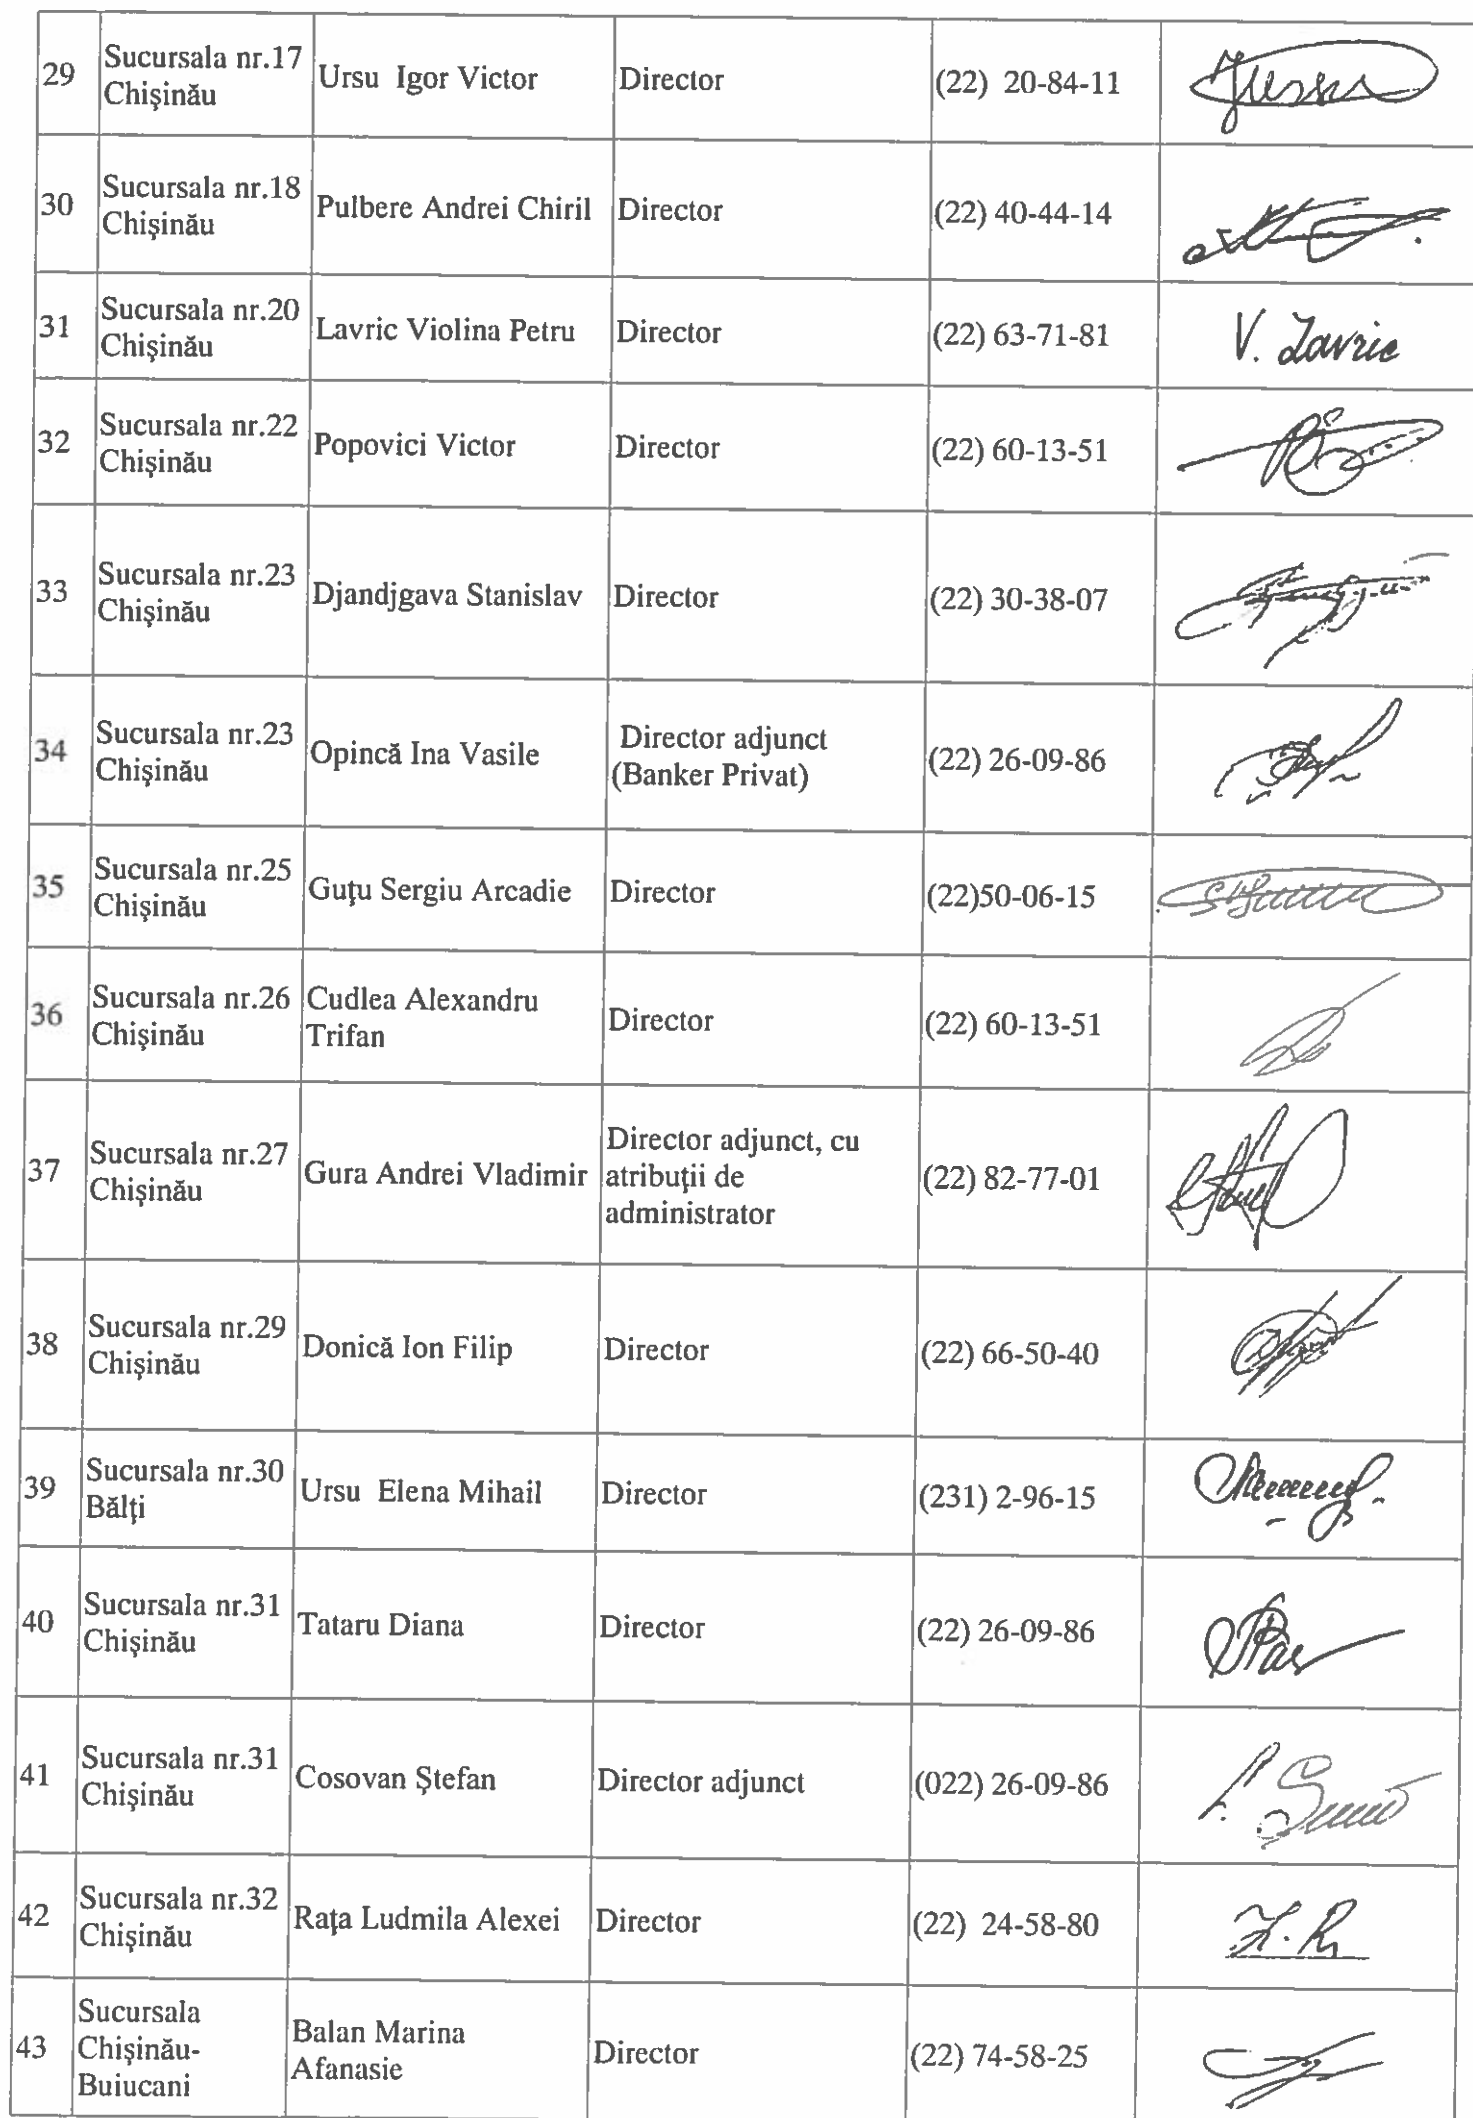 29 Sucursala nr.17 Chişinău Ursu Igor Victor Director (22) 20-84-11
30 Sucursala nr.18 Chişinău Pulbere Andrei Chiril Director (22) 40-44-14
31 Sucursala nr.20 Chişinău Lavric Violina Petru Director (22) 63-71-81 V. Lavric
32 Sucursala nr.22 Chişinău Popovici Victor Director (22) 60-13-51
33 Sucursala nr.23 Chişinău Djandjgava Stanislav Director (22) 30-38-07
34 Sucursala nr.23 Chişinău Opincă Ina Vasile Director adjunct (Banker Privat) (22) 26-09-86
35 Sucursala nr.25 Chişinău Guţu Sergiu Arcadie Director (22)50-06-15
36 Sucursala nr.26 Chişinău Cudlea Alexandru Trifan Director (22) 60-13-51
37 Sucursala nr.27 Chişinău Gura Andrei Vladimir Director adjunct, cu atribuţii de administrator (22) 82-77-01
38 Sucursala nr.29 Chişinău Donică Ion Filip Director (22) 66-50-40
39 Sucursala nr.30 Bălţi Ursu Elena Mihail Director (231) 2-96-15
40 Sucursala nr.31 Chişinău Tataru Diana Director (22) 26-09-86
41 Sucursala nr.31 Chişinău Cosovan Ştefan Director adjunct (022) 26-09-86
42 Sucursala nr.32 Chişinău Raţa Ludmila Alexei Director (22) 24-58-80
43 Sucursala Chişinău-Buiucani Balan Marina Afanasie Director (22) 74-58-25